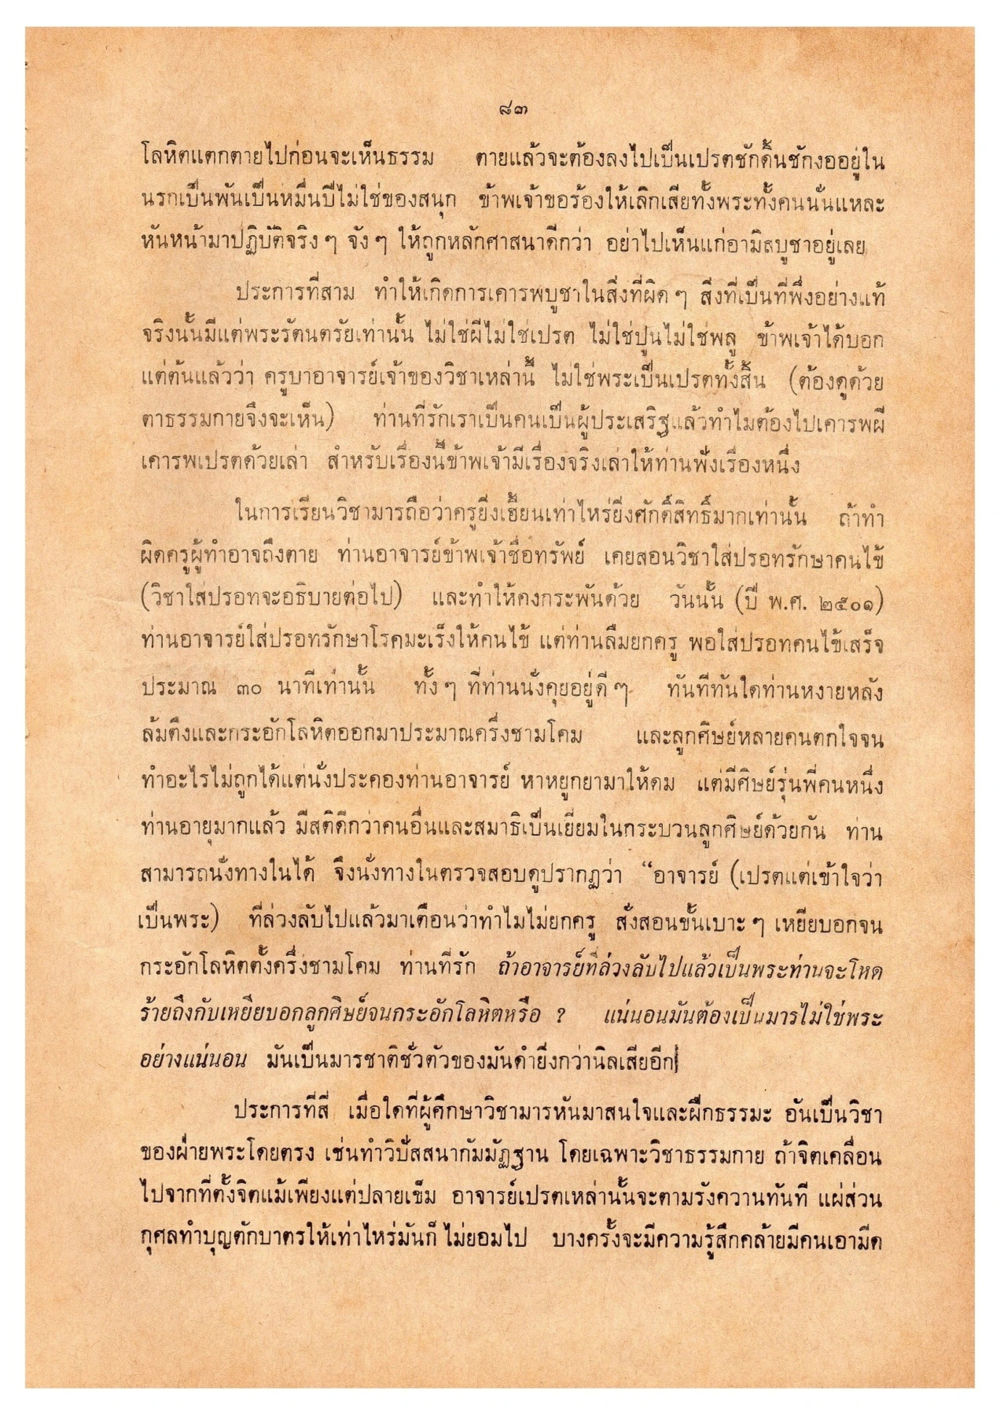 ๘๓
โลหิตแตกตายไปก่อนจะเห็นธรรม ตายแล้วจะต้องลงไปเป็นเปรตชักดิ้นชักงออยู่ใน
นรกเป็นพันเป็นหมื่นปีไม่ใช่ของสนุก ข้าพเจ้าขอร้องให้เลิกเสียทั้งพระทั้งคนนั่นแหละ
หันหน้ามาปฏิบัติจริง ๆ จัง ๆ ให้ถูกหลักศาสนาดีกว่า อย่าไปเห็นแก่อามิสบูชาอยู่เลย
ประการที่สาม ทำให้เกิดการเคารพบูชาในสิ่งที่ผิด ๆ สิ่งที่เป็นที่พึ่งอย่างแท้
จริงนั้นมีแต่พระรัตนตรัยเท่านั้น ไม่ใช่ผีไม่ใช่เปรต ไม่ใช่ปูนไม่ใช่พลู ข้าพเจ้าได้บอก
แต่ต้นแล้วว่า ครูบาอาจารย์เจ้าของวิชาเหล่านี้ ไม่ใช่พระเป็นเปรตทั้งสิ้น (ต้องดูด้วย
ตาธรรมกายจึงจะเห็น) ท่านที่รักเราเป็นคนเป็นผู้ประเสริฐแล้วทำไมต้องไปเคารพผี
เคารพเปรตด้วยเล่า สำหรับเรื่องนี้ข้าพเจ้ามีเรื่องจริงเล่าให้ท่านฟังเรื่องหนึ่ง
ในการเรียนวิชามารถือว่าครูยิ่งเฮี้ยนเท่าไหร่ยิ่งศักดิ์สิทธิ์มากเท่านั้น ถ้าทำ
ผิดครูผู้ทำอาจถึงตาย ท่านอาจารย์ข้าพเจ้าชื่อทรัพย์ เคยสอนวิชาใส่ปรอทรักษาคนไข้
(วิชาใส่ปรอทจะอธิบายต่อไป) และทำให้คงกระพันด้วย วันนั้น (ปี พ.ศ. ๒๕๐๑)
ท่านอาจารย์ใส่ปรอทรักษาโรคมะเร็งให้คนไข้ แต่ท่านลืมยกครู พอใส่ปรอทคนไข้เสร็จ
ประมาณ ๓๐ นาทีเท่านั้น ทั้ง ๆ ที่ท่านนั่งคุยอยู่ดี ๆ ทันทีทันใดท่านหงายหลัง
ล้มตึงและกระอักโลหิตออกมาประมาณครึ่งชามโคม และลูกศิษย์หลายคนตกใจจน
ทำอะไรไม่ถูกได้แต่นั่งประคองท่านอาจารย์ หาหยูกยามาให้ดม แต่มีศิษย์รุ่นพี่คนหนึ่ง
ท่านอายุมากแล้ว มีสติดีกว่าคนอื่นและสมาธิเป็นเยี่ยมในกระบวนลูกศิษย์ด้วยกัน ท่าน
สามารถนั่งทางในได้ จึงนั่งทางในตรวจสอบดูปรากฏว่า “อาจารย์ (เปรตแต่เข้าใจว่า
เป็นพระ) ที่ล่วงลับไปแล้วมาเตือนว่าทำไมไม่ยกครู สั่งสอนขั้นเบาะ ๆ เหยียบอกจน
กระอักโลหิตตั้งครึ่งชามโคม ท่านที่รัก ถ้าอาจารย์ที่ล่วงลับไปแล้วเป็นพระท่านจะโหด
ร้ายถึงกับเหยียบอกลูกศิษย์จนกระอักโลหิตหรือ ? แน่นอนมันต้องเป็นมารไม่ใช่พระ
อย่างแน่นอน มันเป็นมารชาติชั่วตัวของมันดำยิ่งกว่านิลเสียอีก
ประการที่สี่ เมื่อใดที่ผู้ศึกษาวิชามารหันมาสนใจและฝึกธรรมะ อันเป็นวิชา
ของฝ่ายพระโดยตรง เช่นทำวิปัสสนากัมมัฏฐาน โดยเฉพาะวิชาธรรมกาย ถ้าจิตเคลื่อน
ไปจากที่ตั้งจิตแม้เพียงแต่ปลายเข็ม อาจารย์เปรตเหล่านั้นจะตามรังควานทันที แผ่ส่วน
กุศลทำบุญตักบาตรให้เท่าไหร่มันก็ไม่ยอมไป บางครั้งจะมีความรู้สึกคล้ายมีคนเอามีด